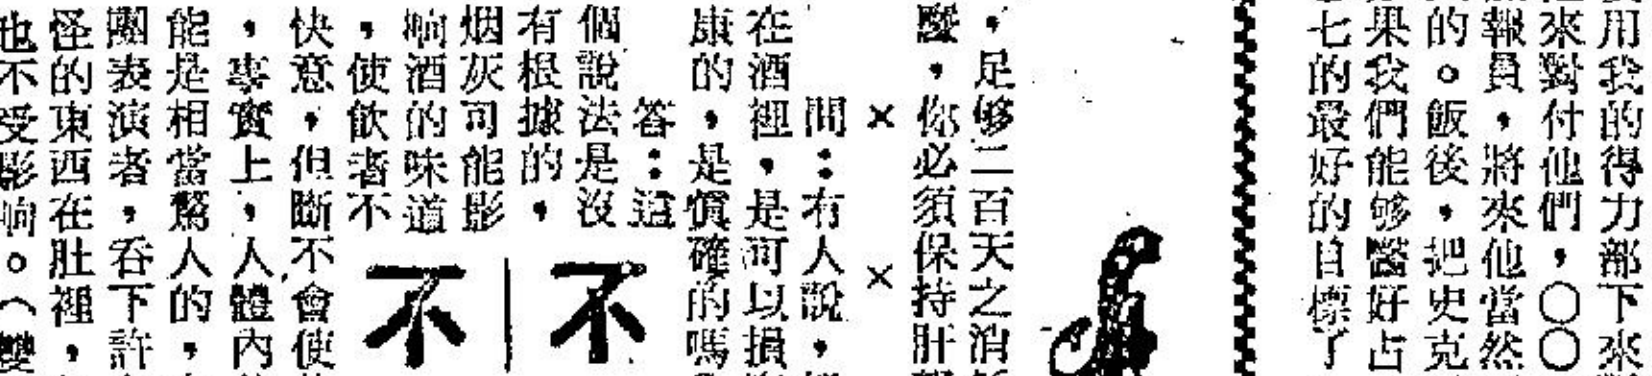 用我的得力部下來
來對付他們，〇〇
報員，將來他當然
的。飯後，把史克
果我們能够醫好占
七的最好的目標了
，足够二百天之消
，你必須保持肝
×　×
問：有人說，
在酒裡，是可以損
康的，是眞確的嗎
答：這
個說法是沒
有根據的，
烟灰可能影
响酒的味道
，使飲者不
快意，但斷不會使
，事實上，人體內
能是相當驚人的，
團表演者，吞下許
怪的東西在肚裡，
也不受影响。（雙
不
不